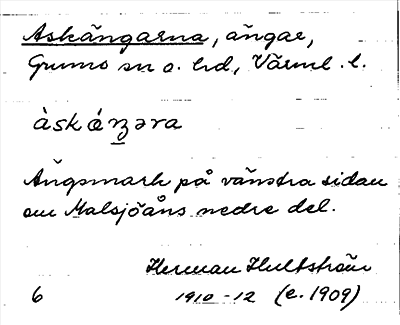 Askängarna, ängar,
Gumo sn o. hd, Värml. l.
àskáŋəra
Ängsmark på vänstra sidan
om Malsjöåns nedre del.
Herman Hultström
6 1910-12 (c. 1909)